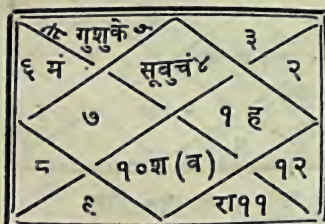 गुशुके ३
६ मं सूवुचं४ २
७ १ ह
८ १०श (व) १२
९ रा११